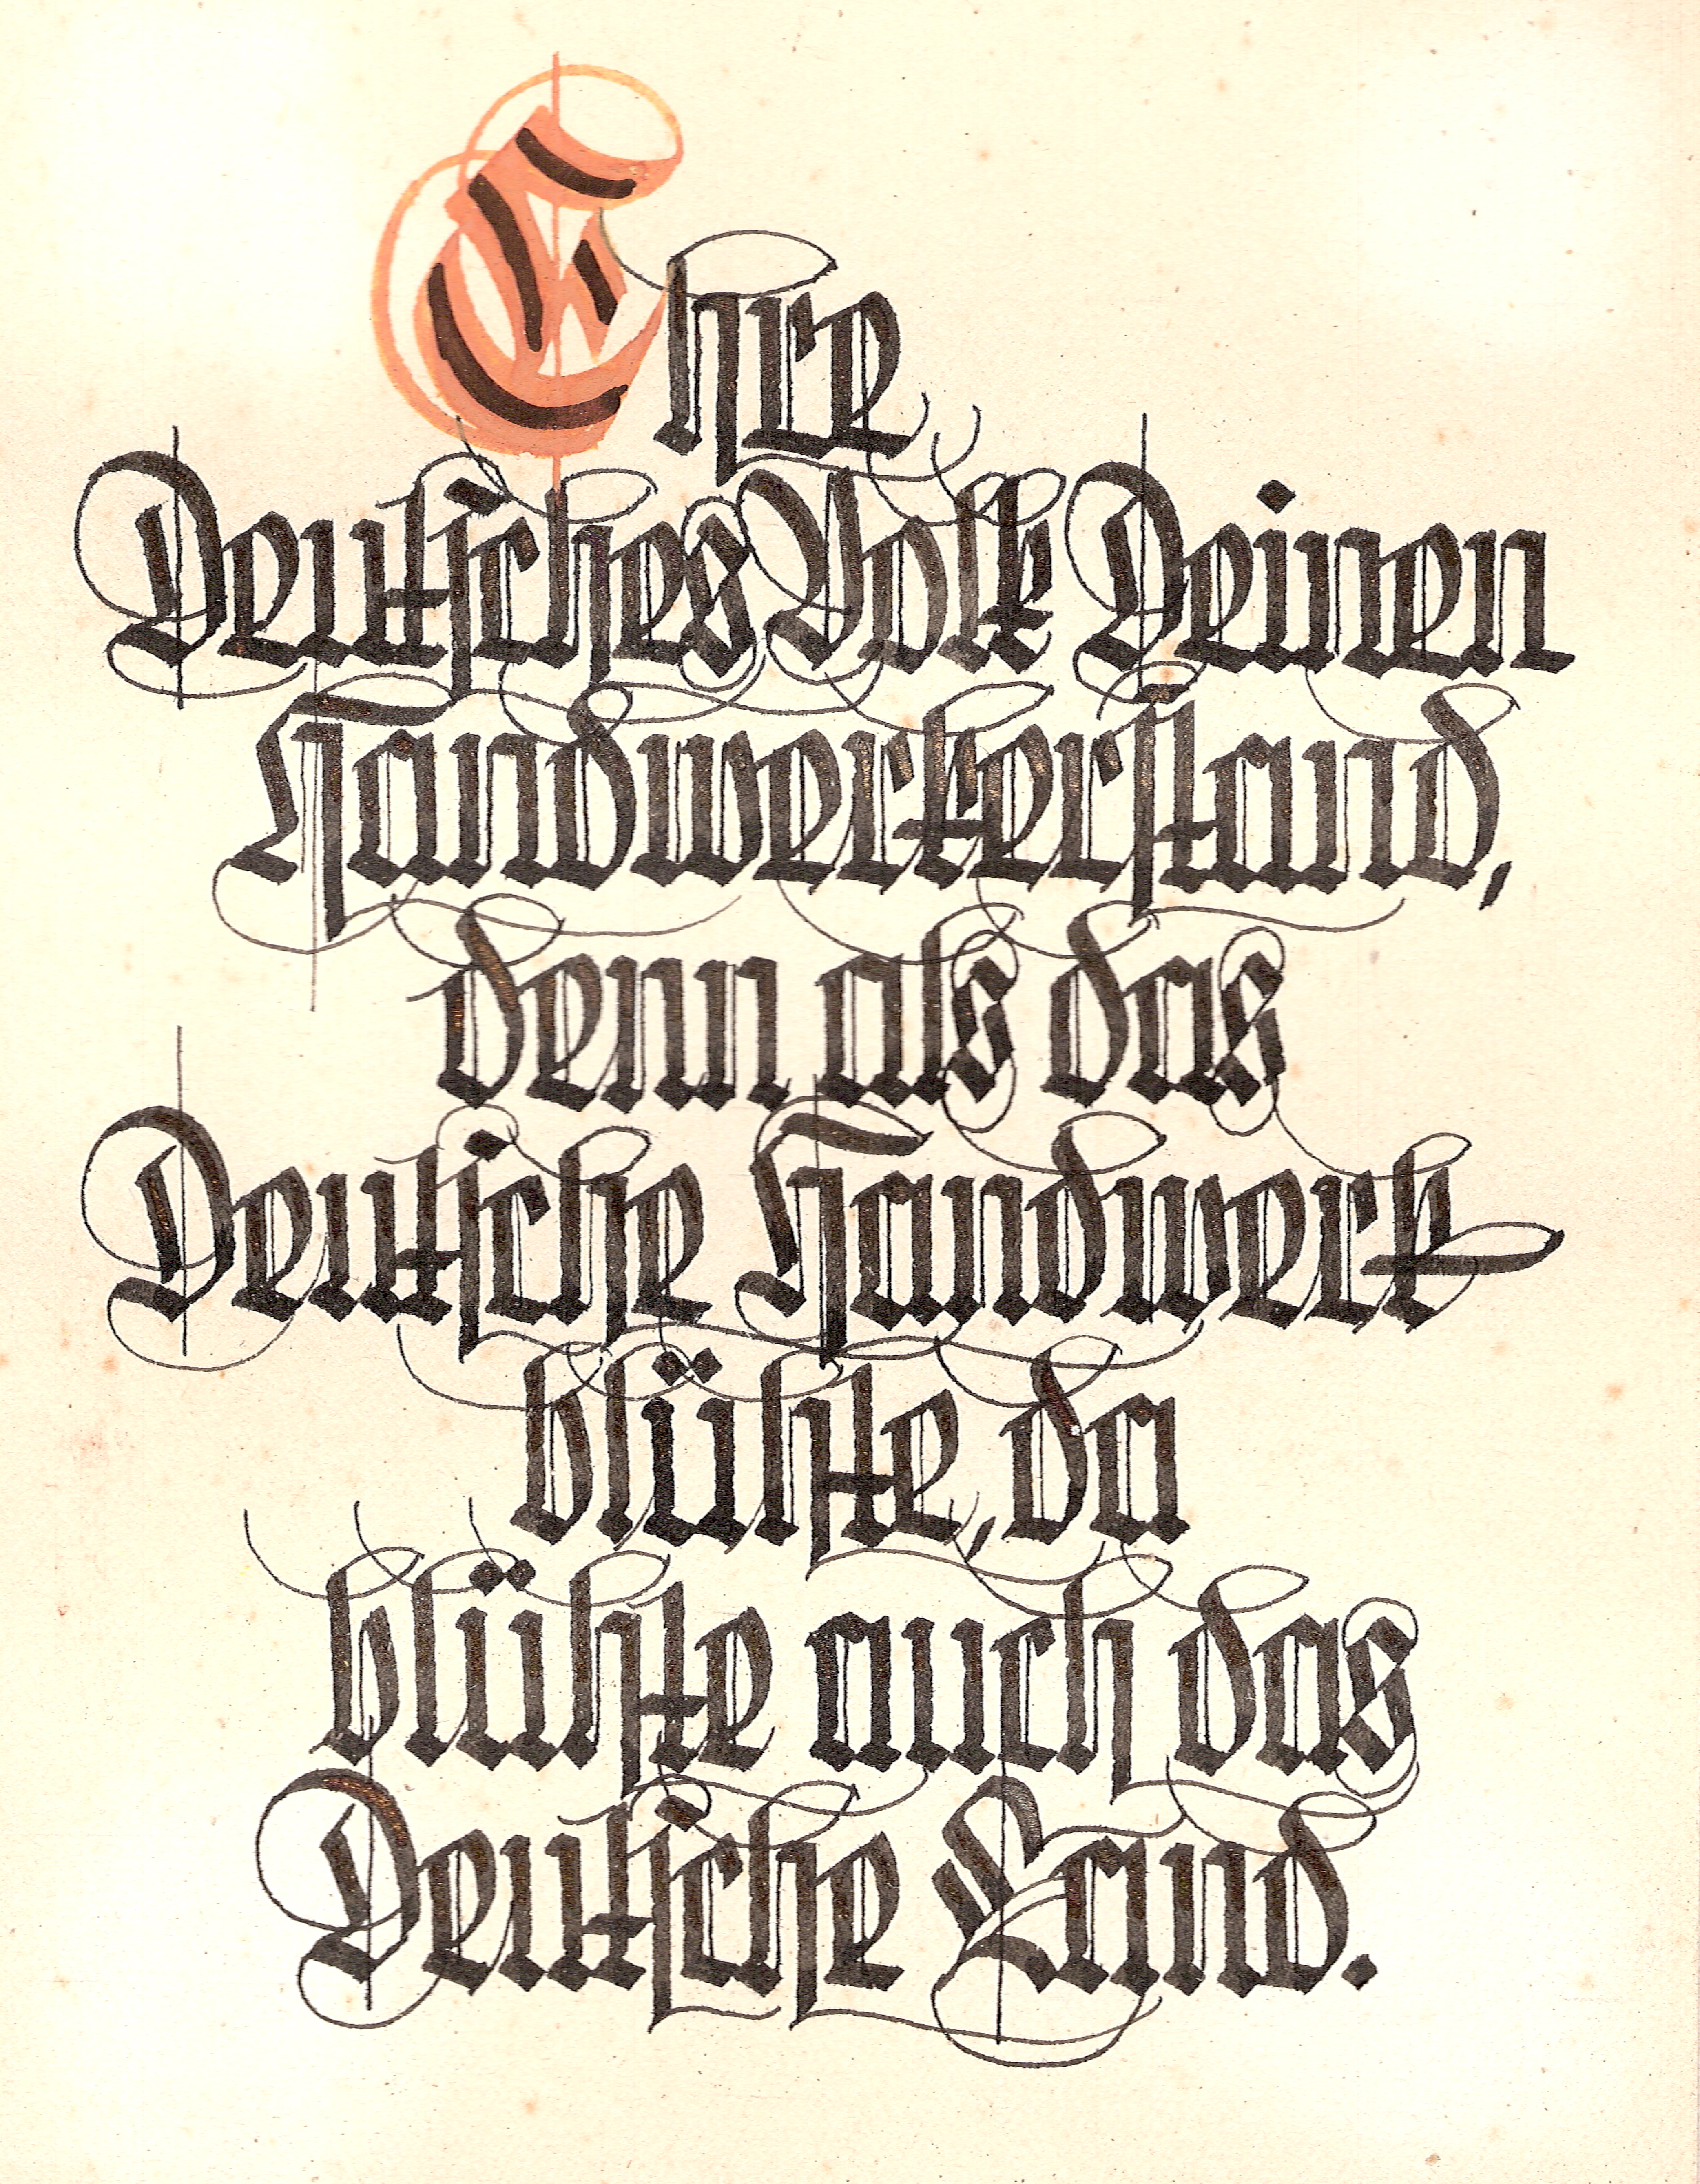 Ehre
Deutsches Volk Deinen
Handwerkerstand,
denn als das
Deutsche Handwerk
blühte, da
blühte auch das
Deutsche Land.